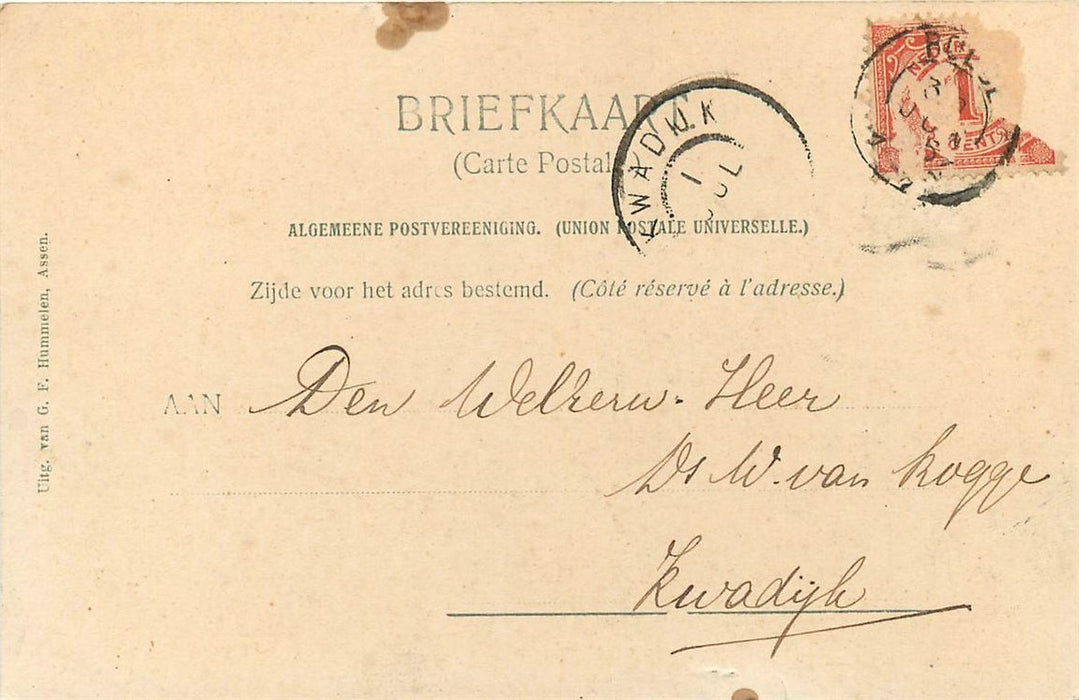 BRIEFKAART
(Carte Postale
ALGEMEENE POSTVEREENIGING. (UNION POSTALE UNIVERSELLE.)
Zijde voor het adres bestemd. (Côté réservé à l'adresse.)
AAN Den Welzeerw. Heer
Ds W. van Rogge
Kwadijk
Uitg. van G. F. Hummelen, Assen.
KWADIJK
1
JUL
1
CENT